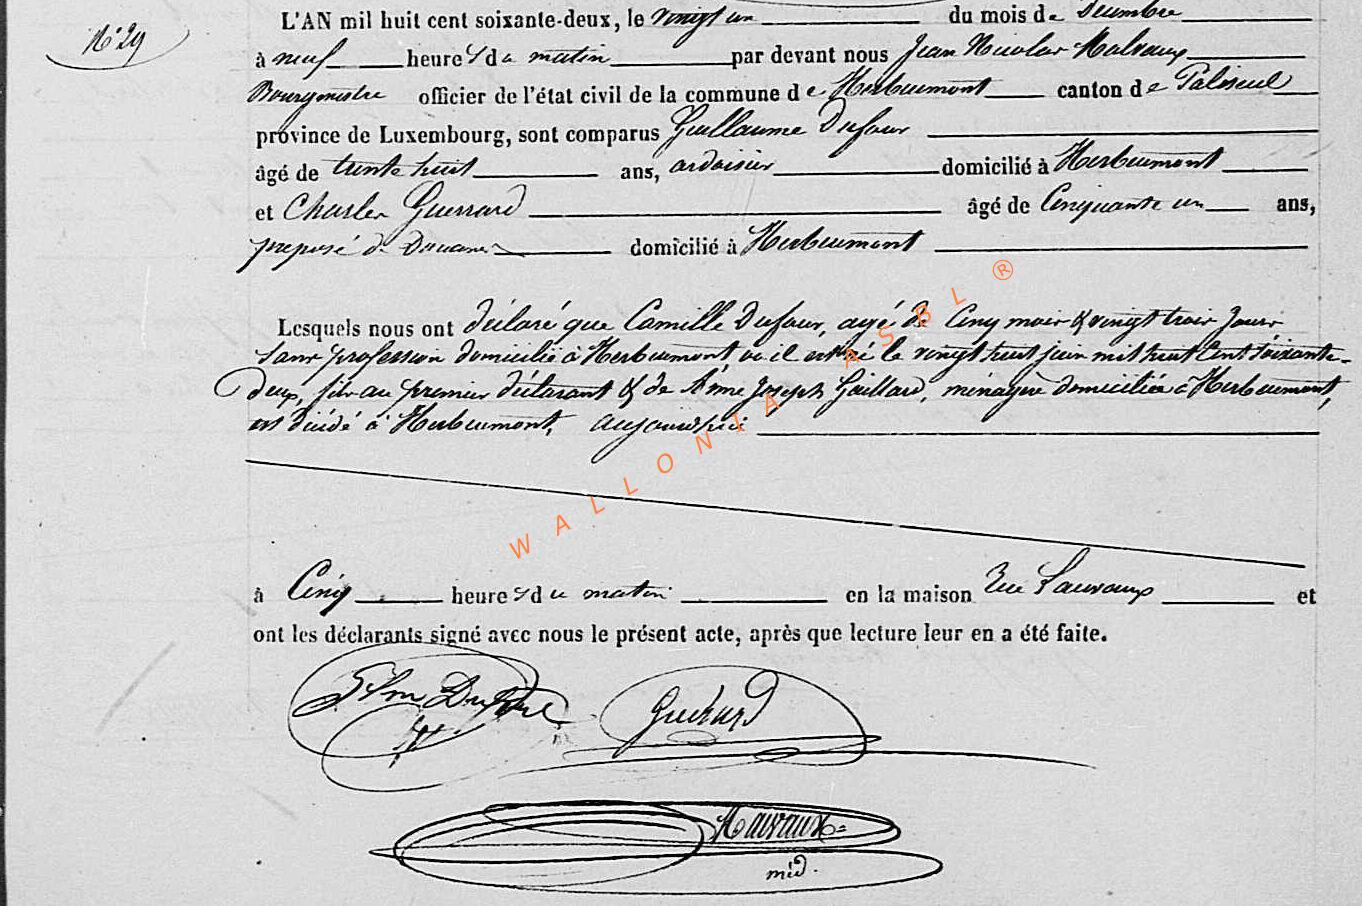 N° 29
L'AN mil huit cent soixante-deux, le vingt un du mois de Décembre
à neuf heures du matin par devant nous Jean Nicolas Malvaux
Bourgmestre officier de l'état civil de la commune de Herbeumont canton de Paliseul
province de Luxembourg, sont comparus Guillaume Dufour
âgé de trente huit ans, ardoisier domicilié à Herbeumont
et Charles Guerrard âgé de Cinquante un ans,
preposé de Douanes domicilié à Herbeumont
Lesquels nous ont déclaré que Camille Dufour, agé de Cinq mois & vingt trois jours
sans profession domicilié à Herbeumont, où il est né le vingt huit juin mil huit cent soixante-
Deux, fils au premier déclarant & de Anne Joseph Gaillard, ménagère domiciliée à Herbeumont,
est décédé à Herbeumont, aujourd'hui
à Cinq heures du matin en la maison Rue et
ont les déclarants signé avec nous le présent acte, après que lecture leur en a été faite.
Dufour Guérard
Malvaux
méd.
WALLONIA ASBL ®